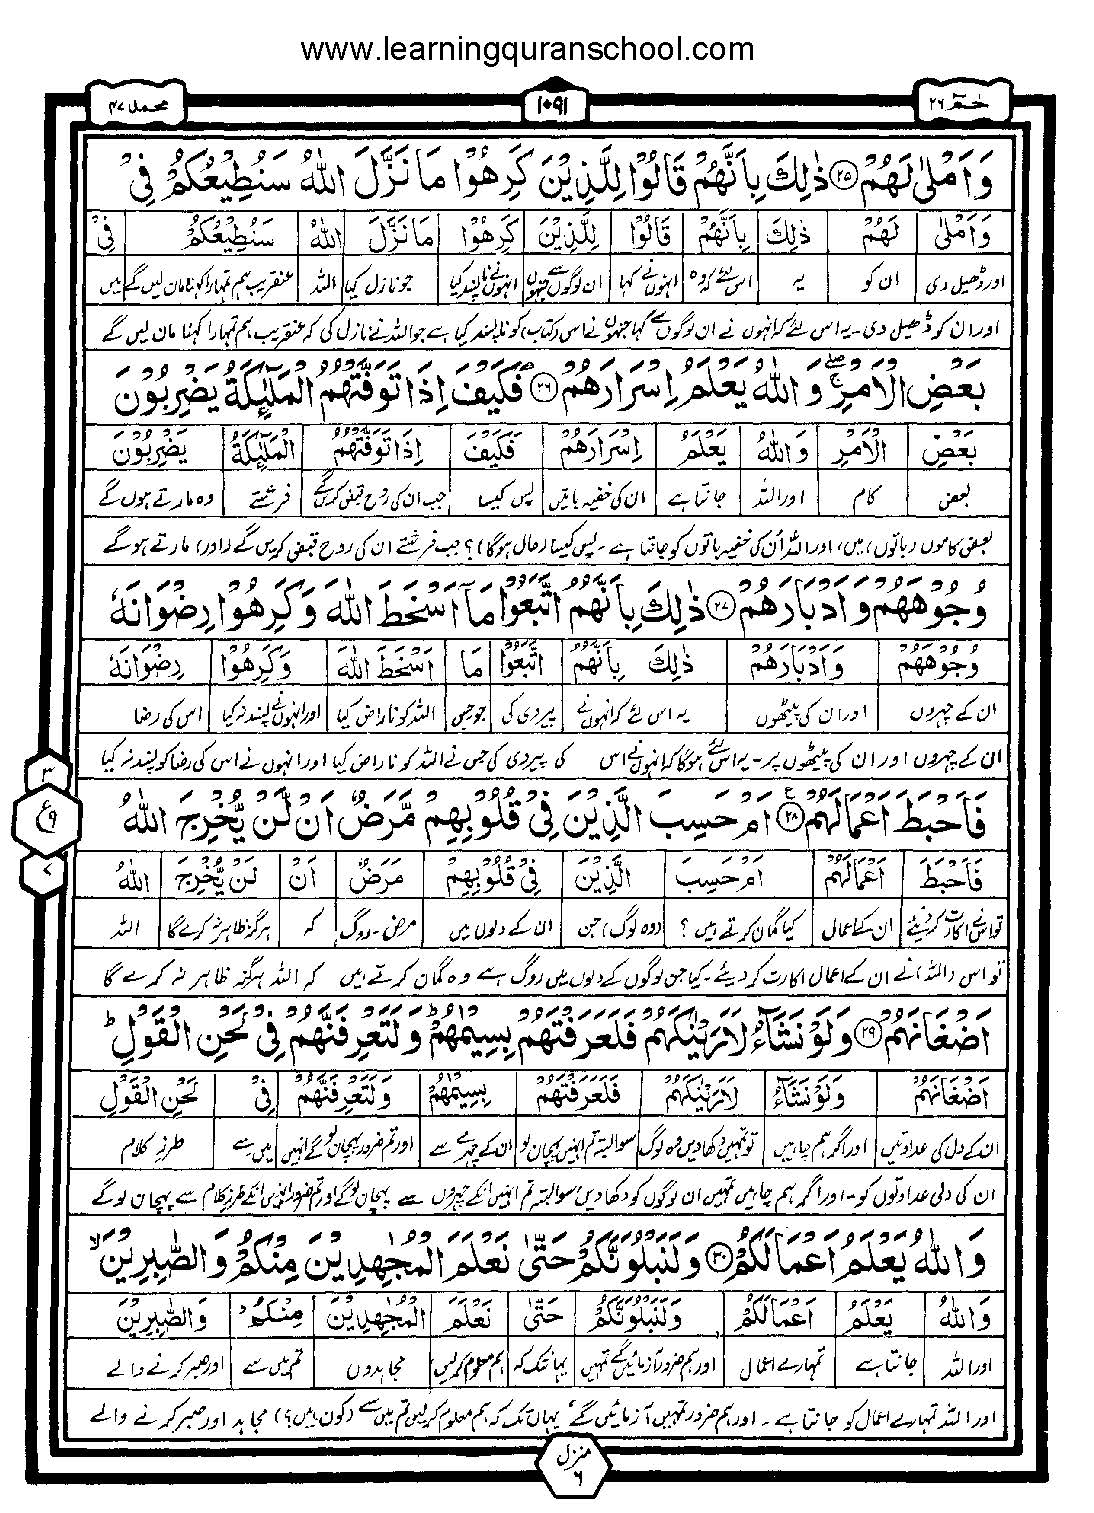 www.learningquranschool.com
حٰمٓ ٢٦
١٠٩١
محمد ٤٧
وَاَمْلٰى لَهُمْ ﴿٢٥﴾ ذٰلِكَ بِاَنَّهُمْ قَالُوْا لِلَّذِيْنَ كَرِهُوْا مَا نَزَّلَ اللّٰهُ سَنُطِيْعُكُمْ فِيْ
وَاَمْلٰى لَهُمْ ذٰلِكَ بِاَنَّهُمْ قَالُوْا لِلَّذِيْنَ كَرِهُوْا مَا نَزَّلَ اللّٰهُ سَنُطِيْعُكُمْ فِيْ
اور ڈھیل دی ان کو یہ اس لئے کہ وہ انہوں نے کہا ان لوگوں سے جنہوں انہوں نے ناپسند کیا جو نازل کیا اللہ عنقریب ہم تمہارا کہنا مان لیں گے میں
اور ان کو ڈھیل دی۔ یہ اس لئے کہ انہوں نے ان لوگوں سے کہا جنہوں نے اس (کتاب) کو ناپسند کیا ہے جو اللہ نے نازل کی کہ عنقریب ہم تمہارا کہنا مان لیں گے
بَعْضِ الْاَمْرِ ۖۚ وَاللّٰهُ يَعْلَمُ اِسْرَارَهُمْ ﴿٢٦﴾ فَكَيْفَ اِذَا تَوَفَّتْهُمُ الْمَلٰٓئِكَةُ يَضْرِبُوْنَ
بَعْضِ الْاَمْرِ وَاللّٰهُ يَعْلَمُ اِسْرَارَهُمْ فَكَيْفَ اِذَا تَوَفَّتْهُمُ الْمَلٰٓئِكَةُ يَضْرِبُوْنَ
بعض کام اور اللہ جانتا ہے ان کی خفیہ باتیں پس کیسا جب ان کی روح قبض کریں گے فرشتے وہ مارتے ہوں گے
بعض کاموں (باتوں) میں، اور اللہ اُن کی خفیہ باتوں کو جانتا ہے۔ پس کیسا (حال ہوگا)؟ جب فرشتے ان کی روح قبض کریں گے (اور) مارتے ہوگے
وُجُوْهَهُمْ وَاَدْبَارَهُمْ ﴿٢٧﴾ ذٰلِكَ بِاَنَّهُمُ اتَّبَعُوْا مَآ اَسْخَطَ اللّٰهَ وَكَرِهُوْا رِضْوَانَهٗ
وُجُوْهَهُمْ وَاَدْبَارَهُمْ ذٰلِكَ بِاَنَّهُمُ اتَّبَعُوْا مَا اَسْخَطَ اللّٰهَ وَكَرِهُوْا رِضْوَانَهٗ
ان کے چہروں اور ان کی پیٹھوں یہ اس لئے کہ انہوں نے پیروی کی جو جس اللہ کو ناراض کیا اور انہوں نے پسند نہ کیا اس کی رضا
ان کے چہروں اور ان کی پیٹھوں پر۔ یہ اس لئے ہوگا کہ انہوں نے اس کی پیروی کی جس نے اللہ کو ناراض کیا اور انہوں نے اس کی رضا کو پسند نہ کیا
٣
ع
٩
٧
فَاَحْبَطَ اَعْمَالَهُمْ ﴿٢٨﴾ اَمْ حَسِبَ الَّذِيْنَ فِيْ قُلُوْبِهِمْ مَّرَضٌ اَنْ لَّنْ يُّخْرِجَ اللّٰهُ
فَاَحْبَطَ اَعْمَالَهُمْ اَمْ حَسِبَ الَّذِيْنَ فِيْ قُلُوْبِهِمْ مَرَضٌ اَنْ لَنْ يُّخْرِجَ اللّٰهُ
تو اس نے اکارت کردیئے ان کے اعمال کیا گمان کرتے ہیں؟ (وہ لوگ) جن ان کے دلوں میں مرض۔ روگ کہ ہرگز ظاہر نہ کرے گا اللہ
تو اس (اللہ) نے ان کے اعمال اکارت کر دیئے۔ کیا جن لوگوں کے دلوں میں روگ ہے وہ گمان کرتے ہیں کہ اللہ ہرگز ظاہر نہ کرے گا
اَضْغَانَهُمْ ﴿٢٩﴾ وَلَوْ نَشَآءُ لَاَرَيْنٰكَهُمْ فَلَعَرَفْتَهُمْ بِسِيْمٰهُمْ ۭ وَلَتَعْرِفَنَّهُمْ فِيْ لَحْنِ الْقَوْلِ ۭ
اَضْغَانَهُمْ وَلَوْ نَشَآءُ لَاَرَيْنٰكَهُمْ فَلَعَرَفْتَهُمْ بِسِيْمٰهُمْ وَلَتَعْرِفَنَّهُمْ فِيْ لَحْنِ الْقَوْلِ
ان کے دل کی عداوتیں اور اگر ہم چاہیں تو تمہیں دکھا دیں وہ لوگ سو البتہ تم انہیں پہچان لو ان کے چہرے سے اور تم ضرور پہچان لو گے انہیں میں سے طرزِ کلام
ان کی دلی عداوتوں کو۔ اور اگر ہم چاہیں تمہیں ان لوگوں کو دکھا دیں سو البتہ تم انہیں انکے چہروں سے پہچان لوگے اور تم ضرور انہیں انکے طرزِ کلام سے پہچان لوگے
وَاللّٰهُ يَعْلَمُ اَعْمَالَكُمْ ﴿٣٠﴾ وَلَنَبْلُوَنَّكُمْ حَتّٰى نَعْلَمَ الْمُجٰهِدِيْنَ مِنْكُمْ وَالصّٰبِرِيْنَ ۙ
وَاللّٰهُ يَعْلَمُ اَعْمَالَكُمْ وَلَنَبْلُوَنَّكُمْ حَتّٰى نَعْلَمَ الْمُجٰهِدِيْنَ مِنْكُمْ وَالصّٰبِرِيْنَ
اور اللہ جانتا ہے تمہارے اعمال اور ہم ضرور آزمائیں گے تمہیں یہانتک کہ ہم معلوم کرلیں مجاہدوں تم میں سے اور صبر کرنے والے
اور اللہ تمہارے اعمال کو جانتا ہے۔ اور ہم ضرور تمہیں آزمائیں گے یہاں تک کہ ہم معلوم کرلیں تم میں سے (کون ہیں؟) مجاہد اور صبر کرنے والے
منزل
٦